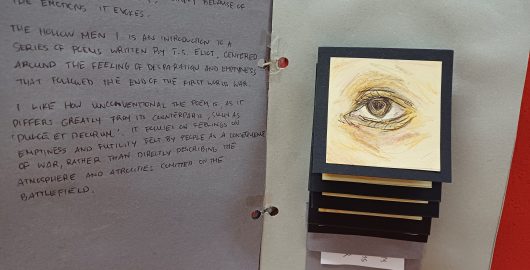 THE EMOTIONS IT EVOKES.
THE HOLLOW MEN I. IS AN INTRODUCTION TO A
SERIES OF POEMS WRITTEN BY T.S. ELIOT, CENTERED
AROUND THE FEELING OF DESPARATION AND EMPTYNESS
THAT FOLLOWED THE END OF THE FIRST WORLD WAR.
I LIKE HOW UNCONVENTIONAL THE POEM IS AS IT
DIFFERS GREATLY FROM ITS COUNTERPARTS, SUCH AS
'DULCE ET DECORUM'. IT FOCUSES ON FEELINGS OF
EMPTINESS AND FUTILITY FELT BY PEOPLE AS A CONSEQUENCE
OF WAR, RATHER THAN DIRECTLY DESCRIBING THE
ATMOSPHERE AND ATROCITIES COMMITED ON THE
BATTLEFIELD.